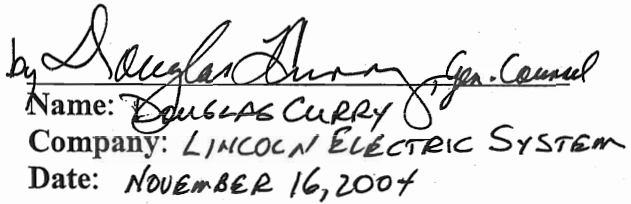 by Douglas Curry, Gen. Counsel
Name: DOUGLAS CURRY
Company: LINCOLN ELECTRIC SYSTEM
Date: NOVEMBER 16, 2004